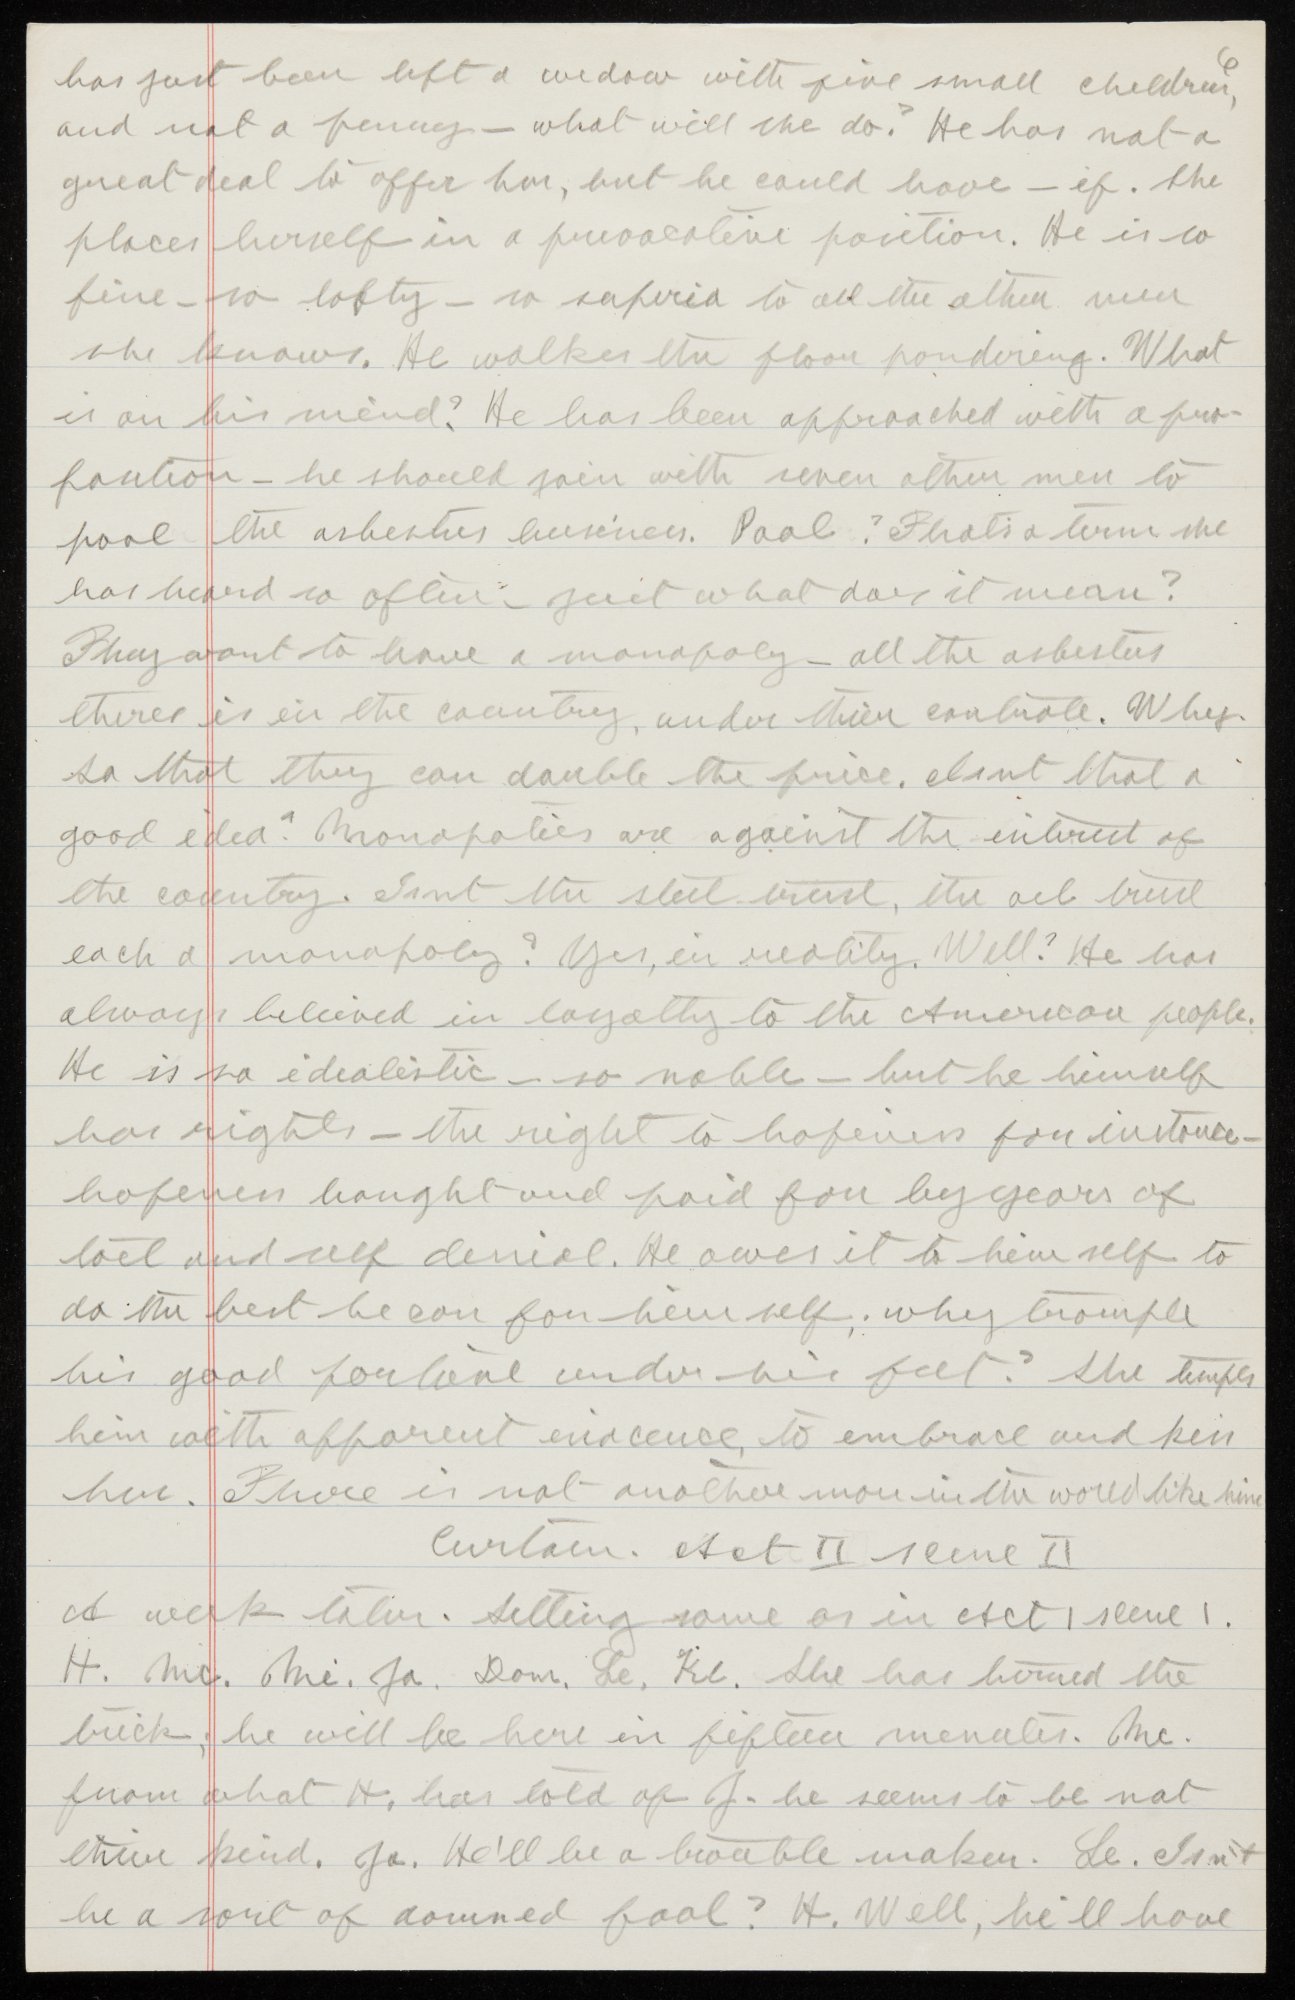 6
has just been left a widow with five small children,
and not a penny — what will she do? He has not a
great deal to offer her, but he could have — if. She
places herself in a provocative position. He is so
fine — so lofty — so superia to all the other men
she knows. He walkes the floor pondering. What
is on his mind? He has been approached with a pro-
position — he should join with seven other men to
pool the asbestus business. Pool? Thats a term she
has heard so often — just what does it mean?
They want to have a monopoly — all the asbestus
theres is in the country, under thier controle. Why.
So that they can double the price. Isnt that a
good idea? Monopolies are against the interest of
the country. Isnt the steel trust, the oil trust
each a monopoly? Yes, in reality. Well? He has
always belieived in loyalty to the American people.
He is so idealistic — so noble — but he himself
has rights — the right to hapiness for instance —
hapiness bought and paid for by years of
toil and self denial. He owes it to himself to
do the best he can for himself; why trample
his good fortune under his feet? She tempts
him with apparent inocence, to embrace and kiss
her. There is not another man in the world like him
Curtain. Act II scene II
A week later. Setting same as in Act I scene I.
H. Mc. Mi. Ja. Dom. Le. Kl. She has turned the
trick; he will be here in fifteen menutes. Mc.
from what H. has told of J. he seems to be not
thier kind. Ja. He'll be a trouble maker. Le. Isn't
he a sort of damned fool? H. Well, he'll have